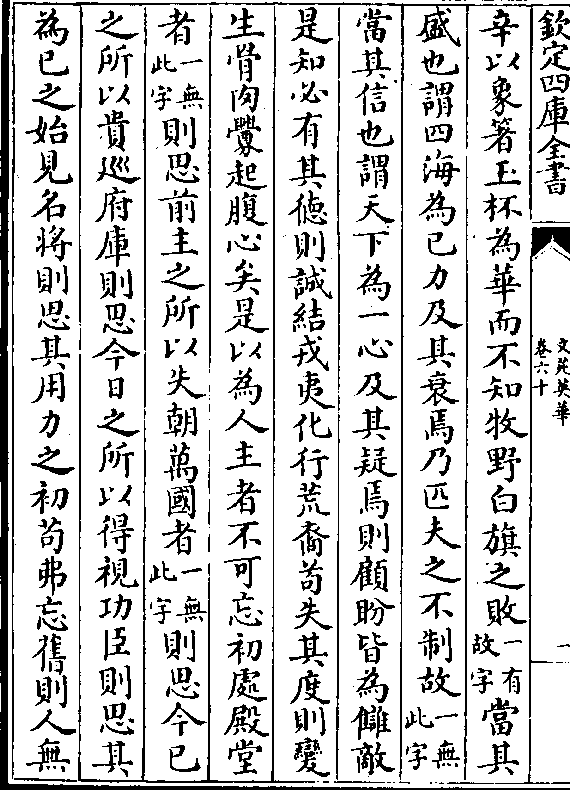 欽定四庫全書
文苑英華
卷六十
一
辛以象箸玉杯為華而不知牧野白旗之敗一有故字當其
盛也謂四海為已力及其衰焉乃匹夫之不制故一無此字
當其信也謂天下為一心及其疑焉則顧盼皆為讎敵
是知必有其德則誠結戎夷化行荒裔苟失其度則變
生骨肉釁起腹心矣是以為人主者不可忘初處殿堂
者一無此字則思前主之所以失朝萬國者一無此字則思今已
之所以貴巡府庫則思今日之所以得視功臣則思其
為已之始見名將則思其用力之初苟弗忘舊則人無